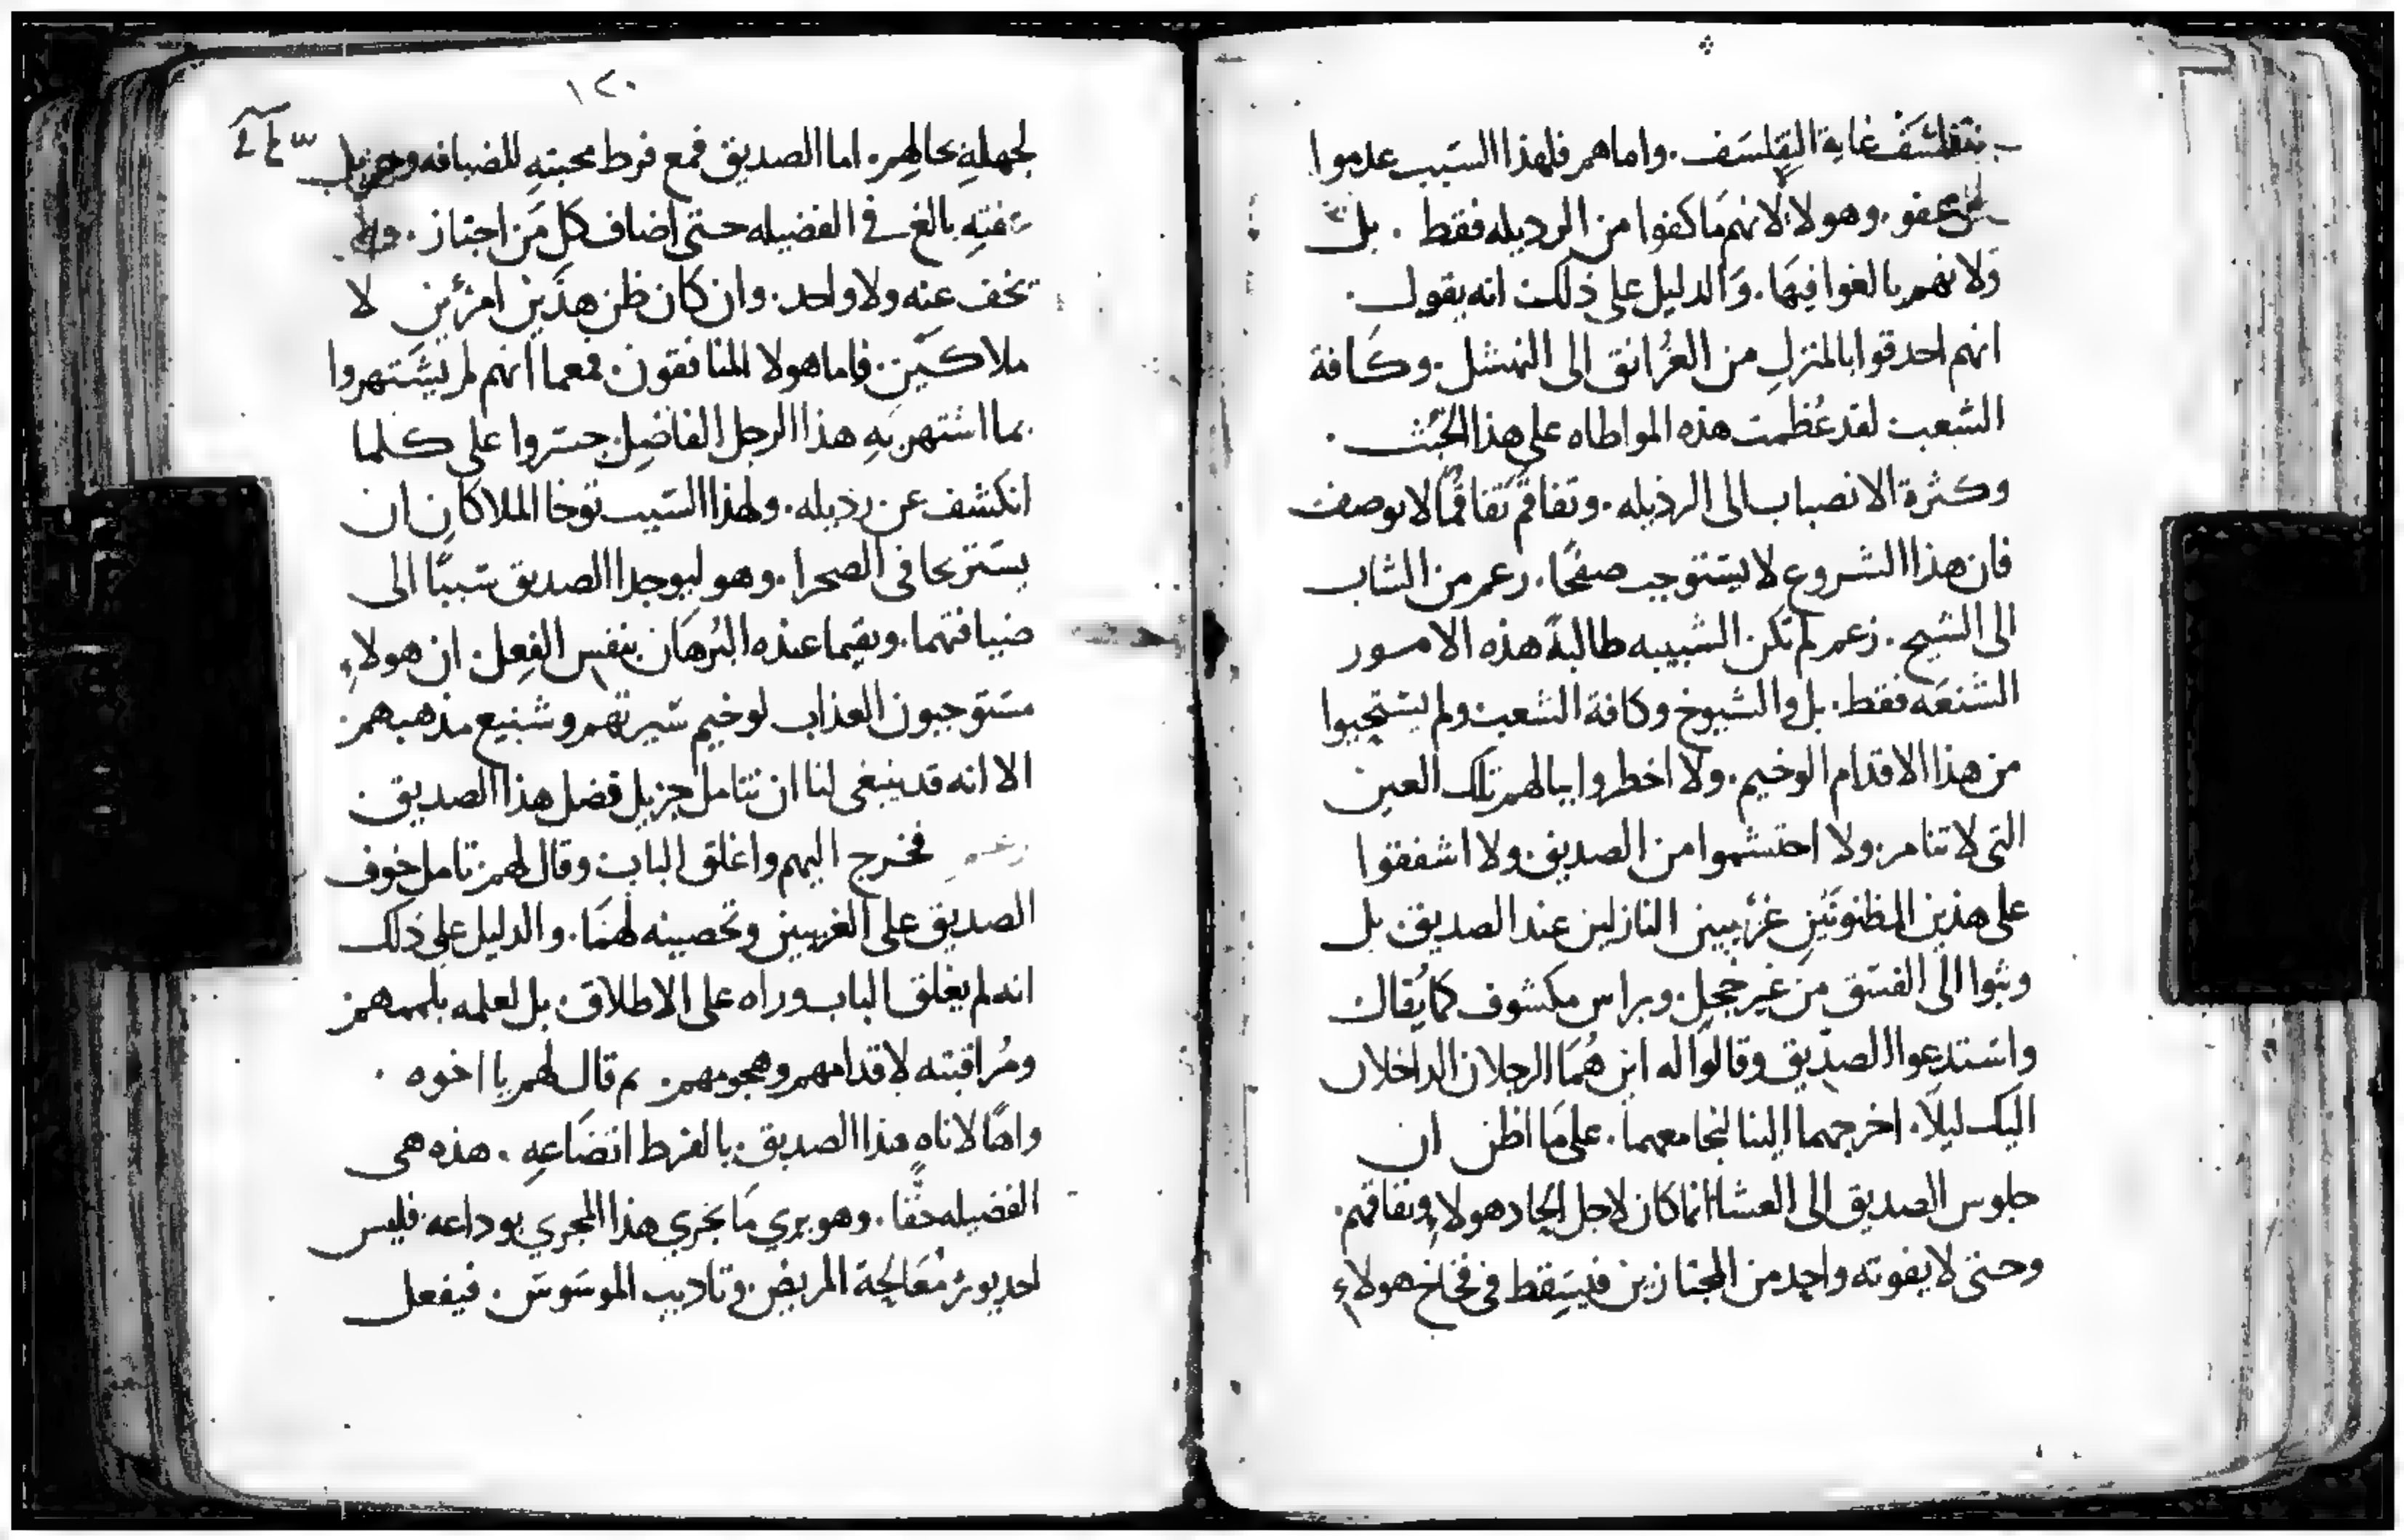 يتفلسف غاية التفلسف. واما هم فلهذا السبب عدموا
كل عفو. وهولا لانهم ما كفوا من الرديله فقط. بل
ولانهم بالغوا فيها. والدليل على ذلك انه يقول.
انهم احدقوا بالمنزل من الغرانق الى النهشل. وكافة
الشعب لقد عظمت هذه المواطاه على هذا الخبث.
وكثرة الانصباب الى الرذيله. وتفاقم تفاقما لا يوصف
فان هذا الشروع لا يستوجب صفحا. زعم من الشاب
الى الشيخ. زعم لم تكن الشبيبه طالبة هذه الامور
الشنعه فقط. بل والشيوخ وكافة الشعب ولم يستحيوا
من هذا الاقدام الوخيم. ولا اخطروا ببالهم تلك العين
التى لا تنام. ولا احتشموا من الصديق. ولا اشفقوا
على هذين المظنونين غريبين النازلين عند الصديق بل
وثبوا الى الفسق من غير خجل. وبراس مكشوف كما يقال
واستدعوا الصديق وقالوا له اين هما الرجلان الداخلان
اليك ليلا. اخرجهما الينا لنجامعهما. على ما اظن ان
جلوس الصديق الى العشا انما كان لاجل الحاد هولاء وتفاقهم.
وحتى لا يفوته واحد من المجتازين فيسقط فى فخاخ هولاء
١٢٠
لجهله بحالهم. اما الصديق فمع فرط محبته للضيافه وجزيل
بالغ فى الفضيله حتى اضاف كل من اجتاز.
يخف عنه ولا واحد. وان كان ظن هذين امرئين لا
ملاكين. فاما هولا المنافقون. فمعما انهم لم يشتهروا
بما اشتهر به هذا الرجل الفاضل. جسروا على كلما
انكشف عن رذيله. ولهذا السبب توخا الملاكان ان
يستريحا فى الصحرا. وهو ليوجدا الصديق سببا الى
ضيافتهما. ويقيما عنده البرهان بنفس الفعل. ان هولاء
مستوجبون العذاب لوخيم سيرتهم وشنيع مذهبهم.
الا انه قد ينبغى لنا ان نتامل جزيل فضل هذا الصديق.
زعم فخرج اليهم واغلق الباب وقال لهم. تامل خوف
الصديق على الغريبين وتحصينه لهما. والدليل على ذلك
انه لم يغلق الباب وراه على الاطلاق. بل لعلمه بلممهم
ومراقبته لاقدامهم وهجومهم. ثم قال لهم يا اخوه.
واها لاناه هذا الصديق. يا لفرط اتضاعه. هذه هى
الفضيله حقا. وهو يري ما يجري هذا المجري بوداعه. فليس
احد يوثر معالجة المريض. وتاديب الموسوس. فيفعل